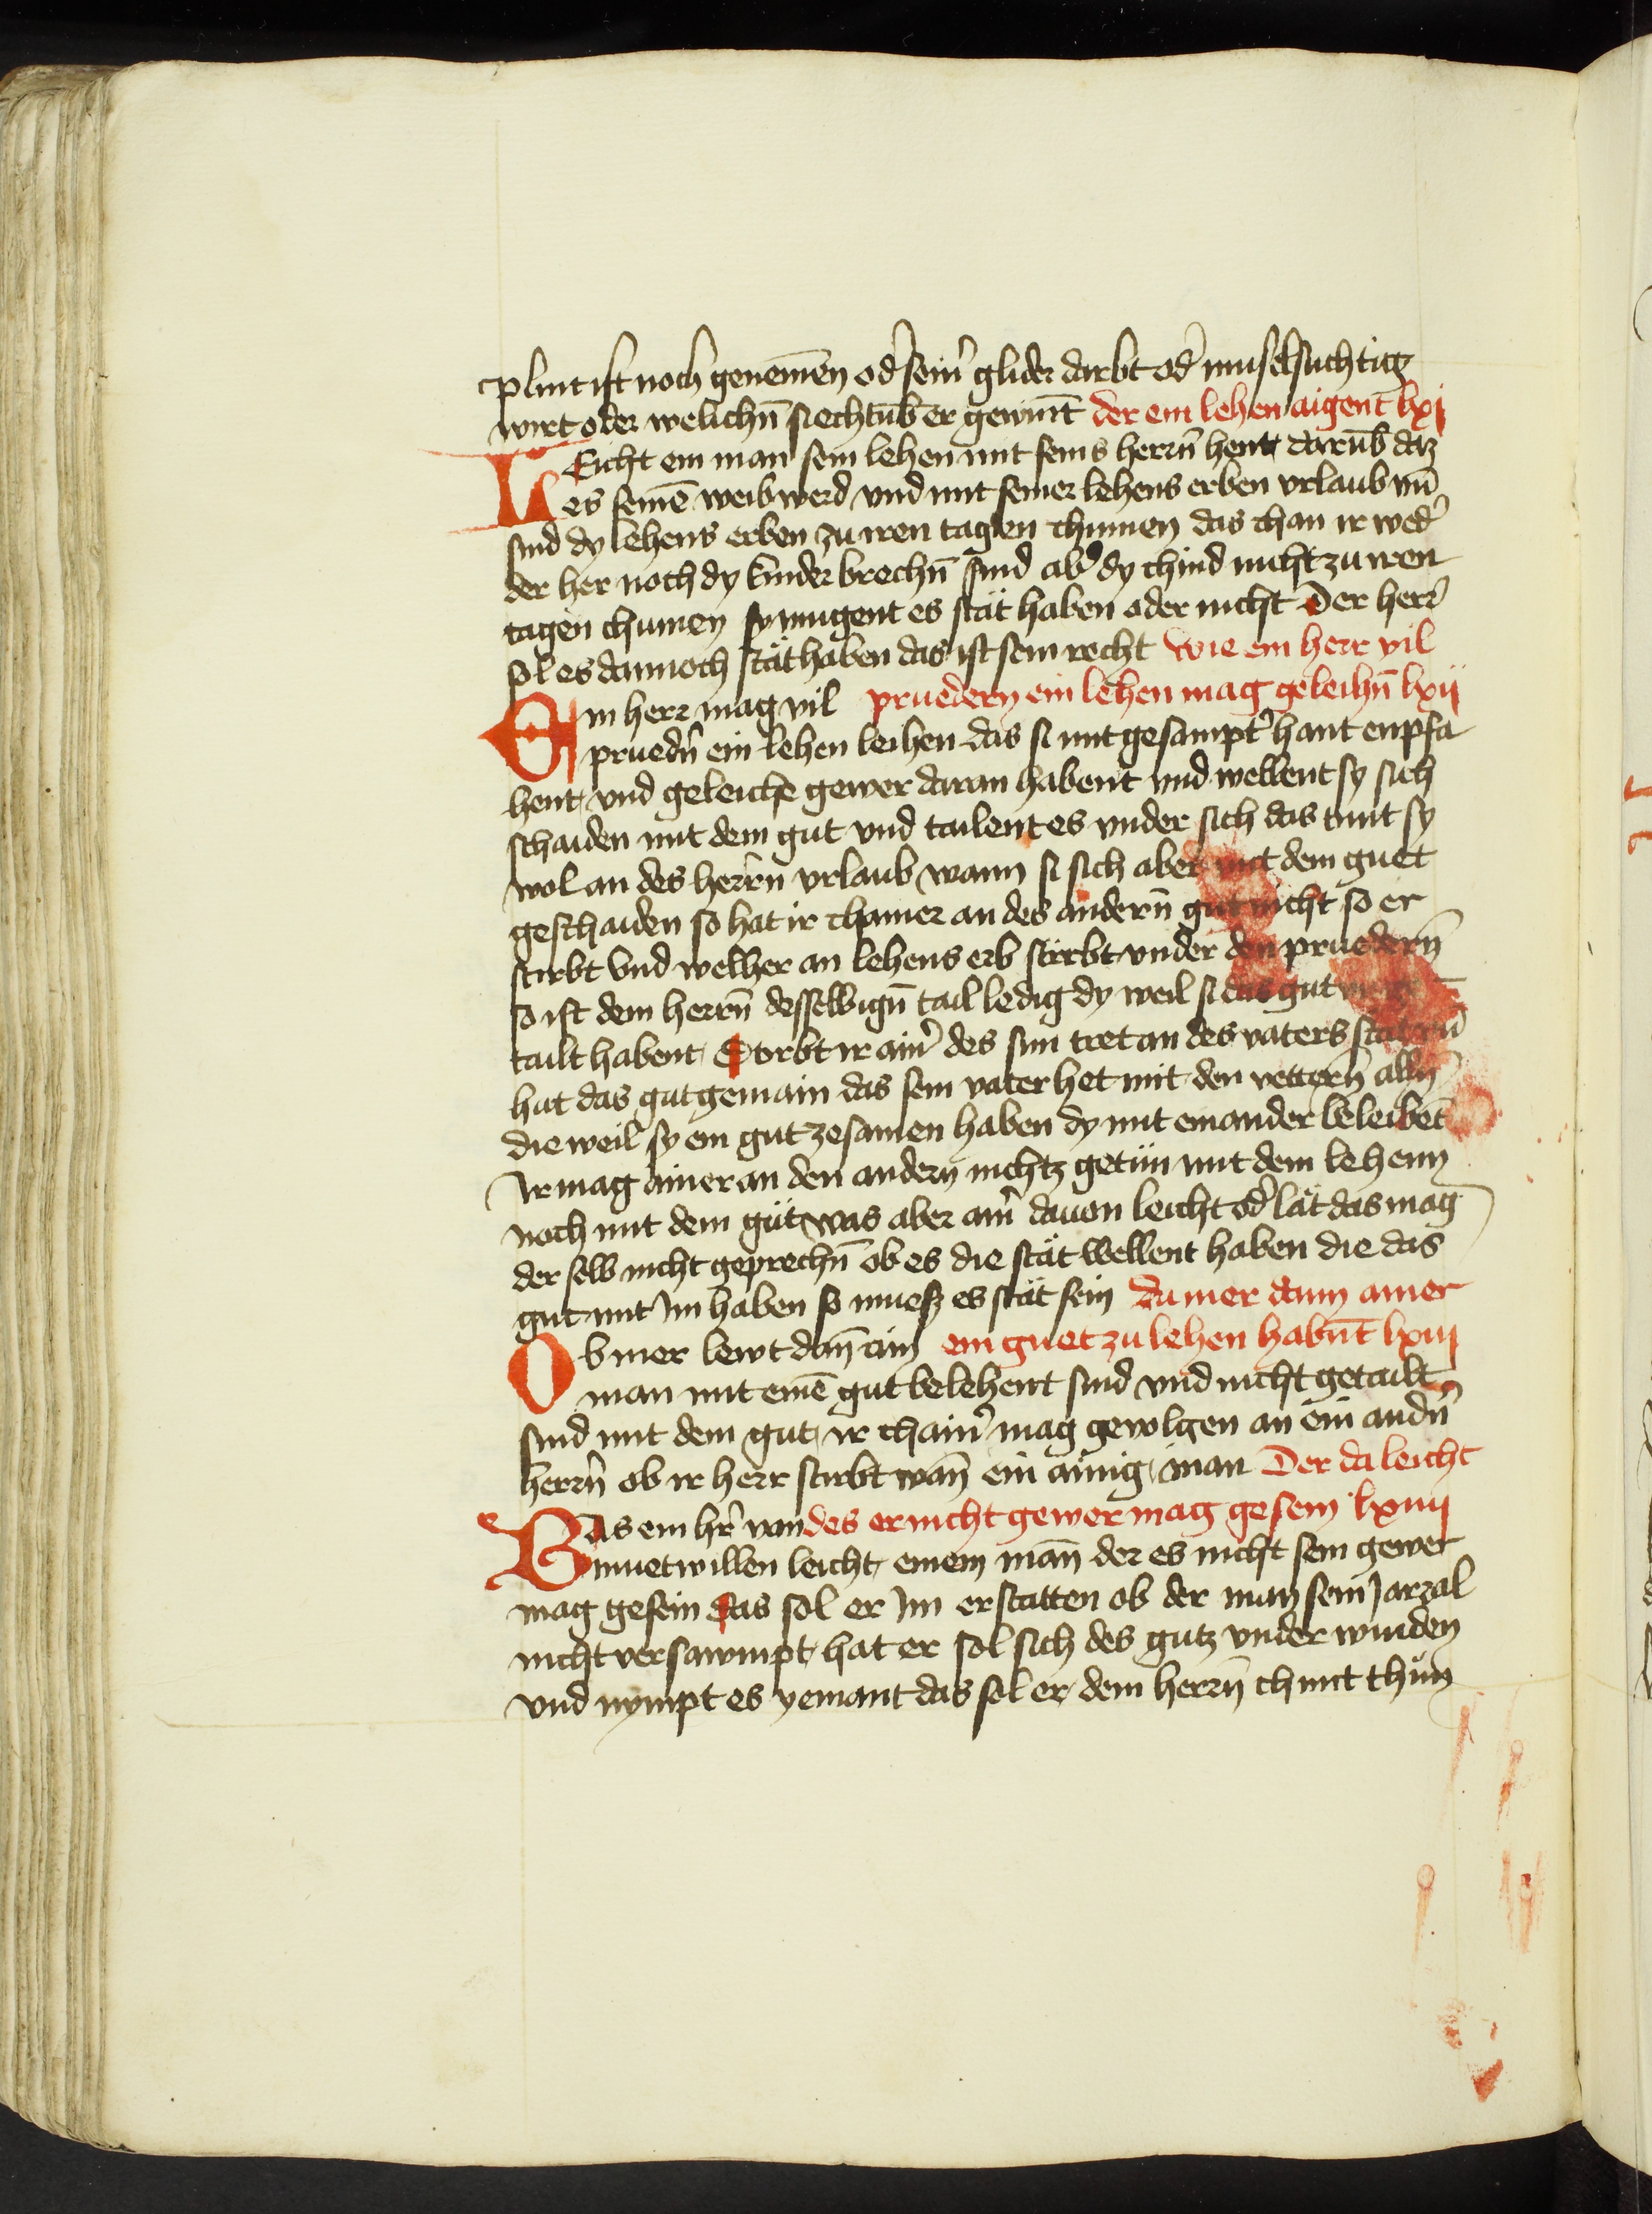 plint ist noch genemēn od̄ sein̄ glider darbt od̄ miselsuchtig
wirt oder welichn̄ siechtūb er gewint der ein lehen aigent lxj
LEicht ein man sein lehen mit seins herrn̄ hent darūb daz
es seinē weib werd vnd mit seiner lehens erben vrlaub vn̄
sind dy lehens erben zu iren tagen chumen das chan ir wed̄
der her noch dy kinder brechn̄ sind ab̄ dy chind nicht zu iren
tagen chumen sy mugent es stät haben oder nicht Der herr̄
sol es dannoch stät haben das ist sein recht wie ein herr vil
EIn herr mag vil pruedern ein lehen mag geleihn̄ lxij
pruedn̄ ein lehen leihen das si mit gesampt̄ hant enpfa
hent vnd geleiche gewer daran habent vnd wellent sy sich
schaiden mit dem gut vnd tailent es vnder sich das tunt sy
wol an des herrn vrlaub wann si sich aber mit dem guet
geschaiden so hat ir chainer an des andern̄ gut nicht so er
stirbt Vnd welher an lehens erb stirbt vnder den pruedern̄
so ist dem herrn̄ desselbign̄ tail ledig dy weil si das gut
tailt habent Stirbt ir ain̄ des sun tret an des vaters stat vn̄
hat das gut gemain das sein vater het mit den vettern̄ alln̄
die weil sy ein gut zesamen haben dy mit einander beleibēt
Ir mag ainer an den andern nichtz getün mit dem lehenn
noch mit dem güt was aber ain̄ dauon leicht od̄ lät das mag
der selb nicht geprechn̄ ob es die stät wellent haben die das
gut mit Im haben so muesz es stät sein da mer dann ainer
OB mer lewt dan̄ ain ein guet zu lehen habnt̄ lxiij
man mit einē gut belehent sind vnd nicht getailt
sind mit dem gut ir chain̄ mag geuolgen an ein andn̄
herrn̄ ob ir herr stirbt wan̄ ein ainig man Der da leicht
WAs ein hr̄ von des er nicht gewer mag gesein lxiiij
muetwillen leicht einem man̄ der es nicht sein gewer
mag gesein das sol er Im erstatten ob der man sein Jarzal
nicht versawmpt hat er sol sich des gutz vnder winden
vnd nympt es yemant das sol er dem herrn̄ chunt thün